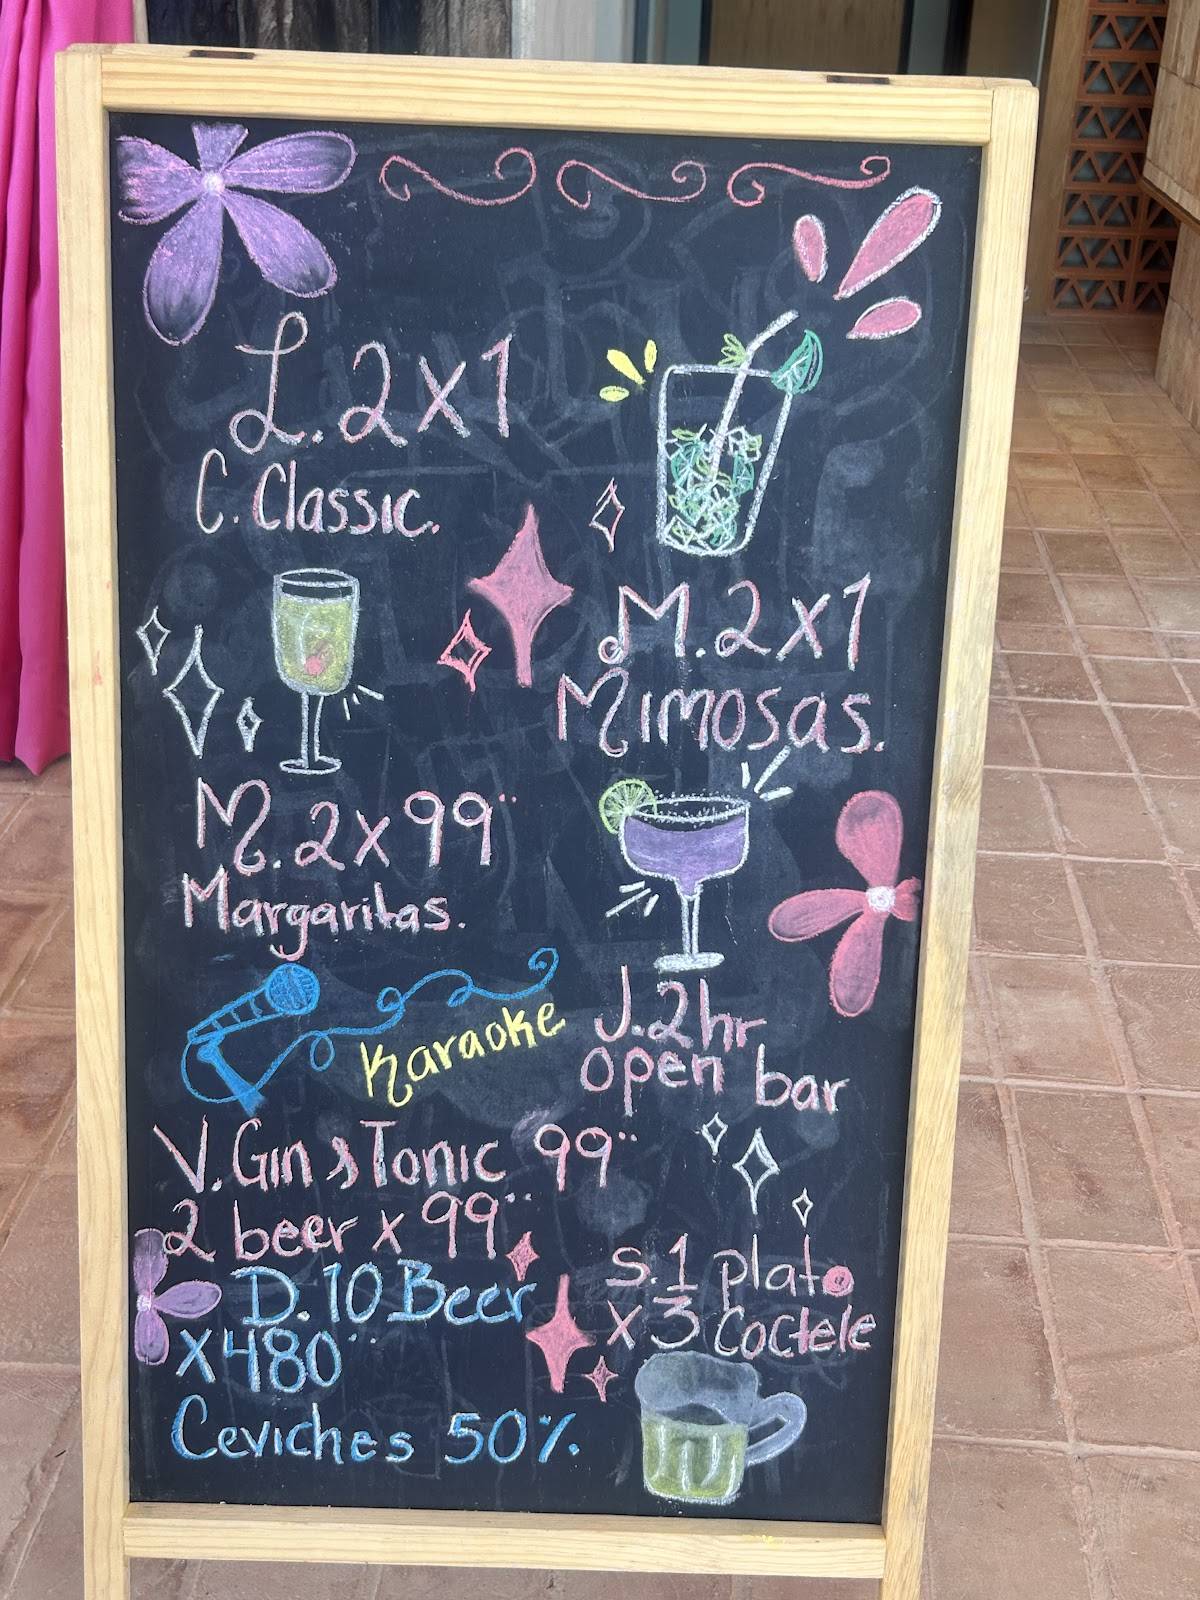 L. 2x1
C. Classic.
M. 2x1
Mimosas.
M. 2x99
Margaritas.
Karaoke
J. 2hr
open bar
V. Gin & Tonic 99
2 beer x 99
D. 10 Beer
x480
Ceviches 50%.
S. 1 plato
x 3 Coctele